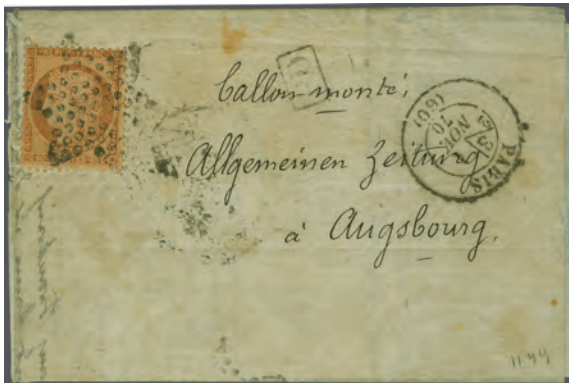 Ballon monté,
Allgemeinen Zeitung
à Augsbourg.
PD
PARIS
23
NOV.
70
(60)
1144